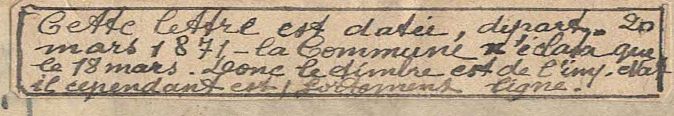 Cette lettre est datée, départ. 20
mars 1871 - la Commune n'éclata que
le 18 mars. Donc le timbre est de l'imp. état
il cependant est, fortement ligné.